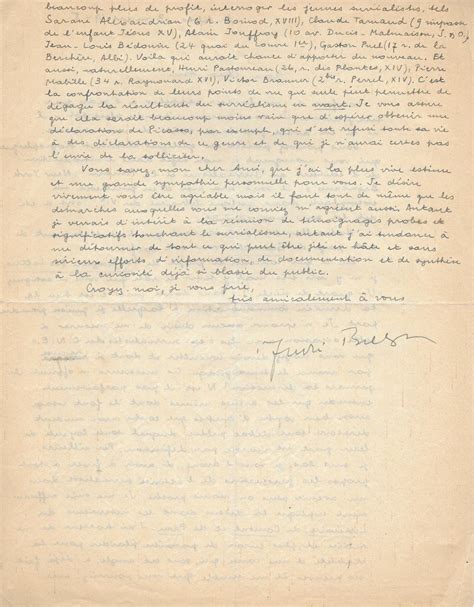 beaucoup plus de profit, interroger les jeunes surréalistes, tels
Sarane Alexandrian (6 r. Boinod, XVIII), Claude Tarnaud (9 impasse
de l'enfant Jésus XV), Alain Jouffroy (10 av. Ducis. Malmaison, S. et O.)
Jean-Louis Bédouin (24 quai du Louvre 1er), Gaston Puel (17 r. de la
Berchère, Albi). Voilà qui aurait chance d'apporter du nouveau. Et
aussi, naturellement, Henri Pastoureau (26, r. des Plantes, XIV), Pierre
Mabille (34 r. Raynouard XVI), Victor Brauner (2 bis r. Perrel, XIV). C'est
la confrontation de leurs points de vue qui seule peut permettre de
dégager la résultante du surréalisme en avant. Je vous assure
que cela serait beaucoup moins vain que d'espérer obtenir une
déclaration de Picasso, par exemple, qui s'est refusé toute sa vie
à des déclarations de ce genre et de qui je n'aurai certes pas
l'envie de la solliciter.
Vous savez, mon cher ami, que j'ai la plus vive estime
et une grande sympathie personnelle pour vous. Je désire
vivement vous être agréable mais il faut tout de même que les
démarches auxquelles vous me conviez m'agréent aussi. Autant
je pourrais d'intérêt à la réunion de témoignages probes et
significatifs touchant le surréalisme, autant j'ai tendance à
me détourner de tout ce qui peut être jeté en hâte et sans
sérieux efforts d'information, de documentation et de synthèse
à la curiosité déjà si blasée du public.
Croyez-moi, je vous prie,
très amicalement à vous
André Breton